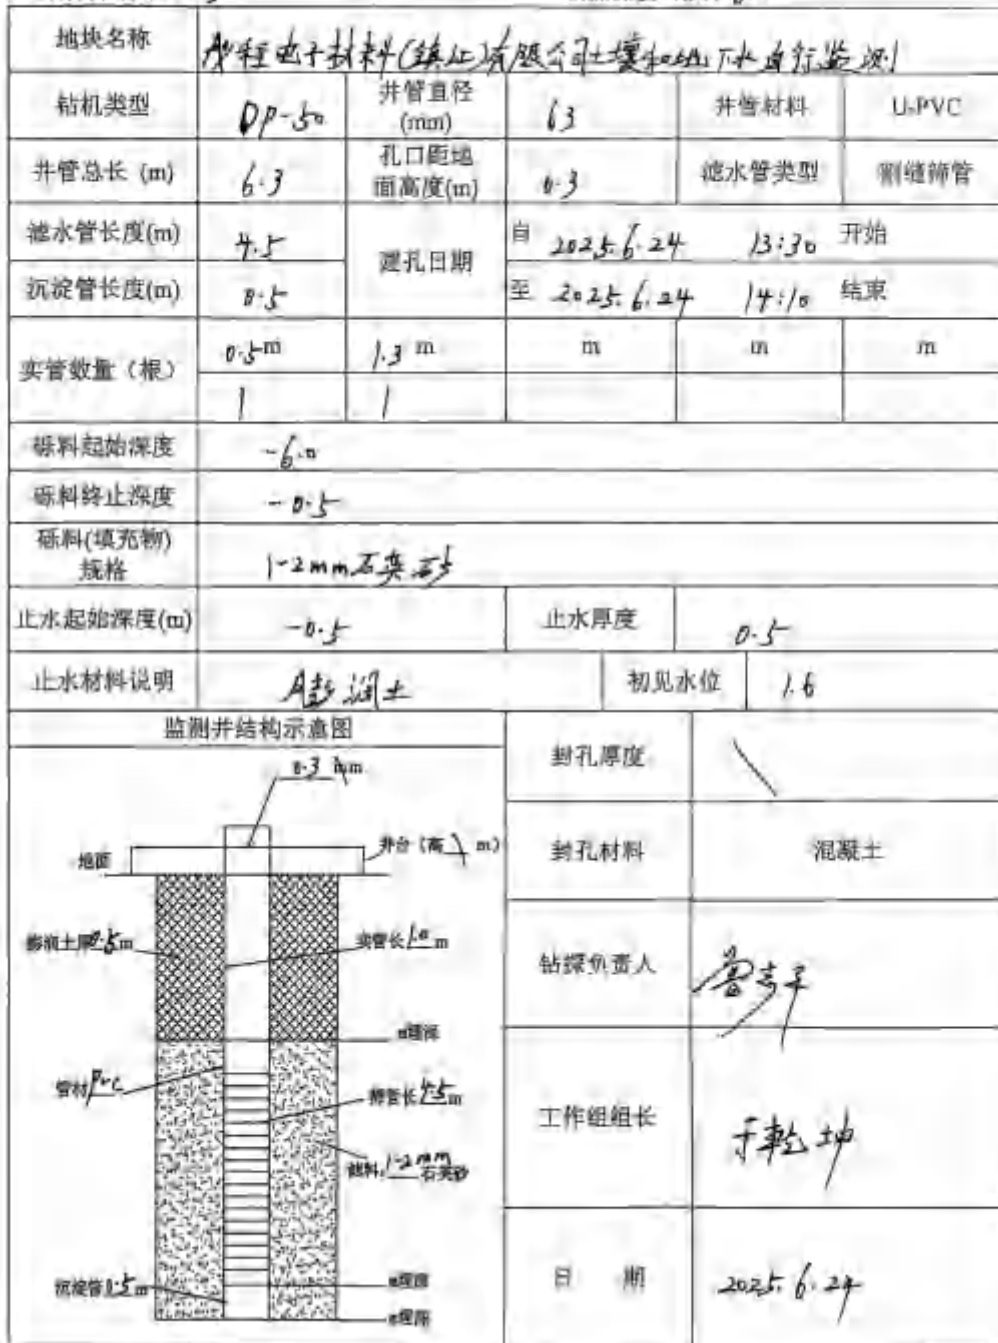 地块名称 电子材料(镇江)有限公司土壤和地下水自行监测
钻机类型 DP-50 井管直径(mm) 63 井管材料 UPVC
井管总长 (m) 6.3 孔口距地面高度(m) 0.3 滤水管类型 割缝筛管
滤水管长度(m) 4.5 建孔日期 自 2025.6.24 13:30 开始
沉淀管长度(m) 0.5 至 2025.6.24 14:10 结束
实管数量（根） 0.5 m 1.3 m m m m
1 1
砾料起始深度 -6.0
砾料终止深度 -0.5
砾料(填充物)规格 1-2mm石英砂
止水起始深度(m) -0.5 止水厚度 0.5
止水材料说明 膨润土 初见水位 1.6
监测井结构示意图
0.3 m
地面
井台（高 \ m）
膨润土厚0.5m
实管长1.0m
m埋深
管材PVC
筛管长4.5m
砾料,1-2mm石英砂
沉淀管0.5m
m埋深
m埋深
封孔厚度 \
封孔材料 混凝土
钻探负责人
工作组组长 乾坤
日 期 2025.6.24